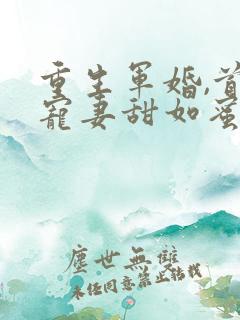 重生軍婚,首
寵妻甜如蜜
塵世無雙
未經同意禁止轉載